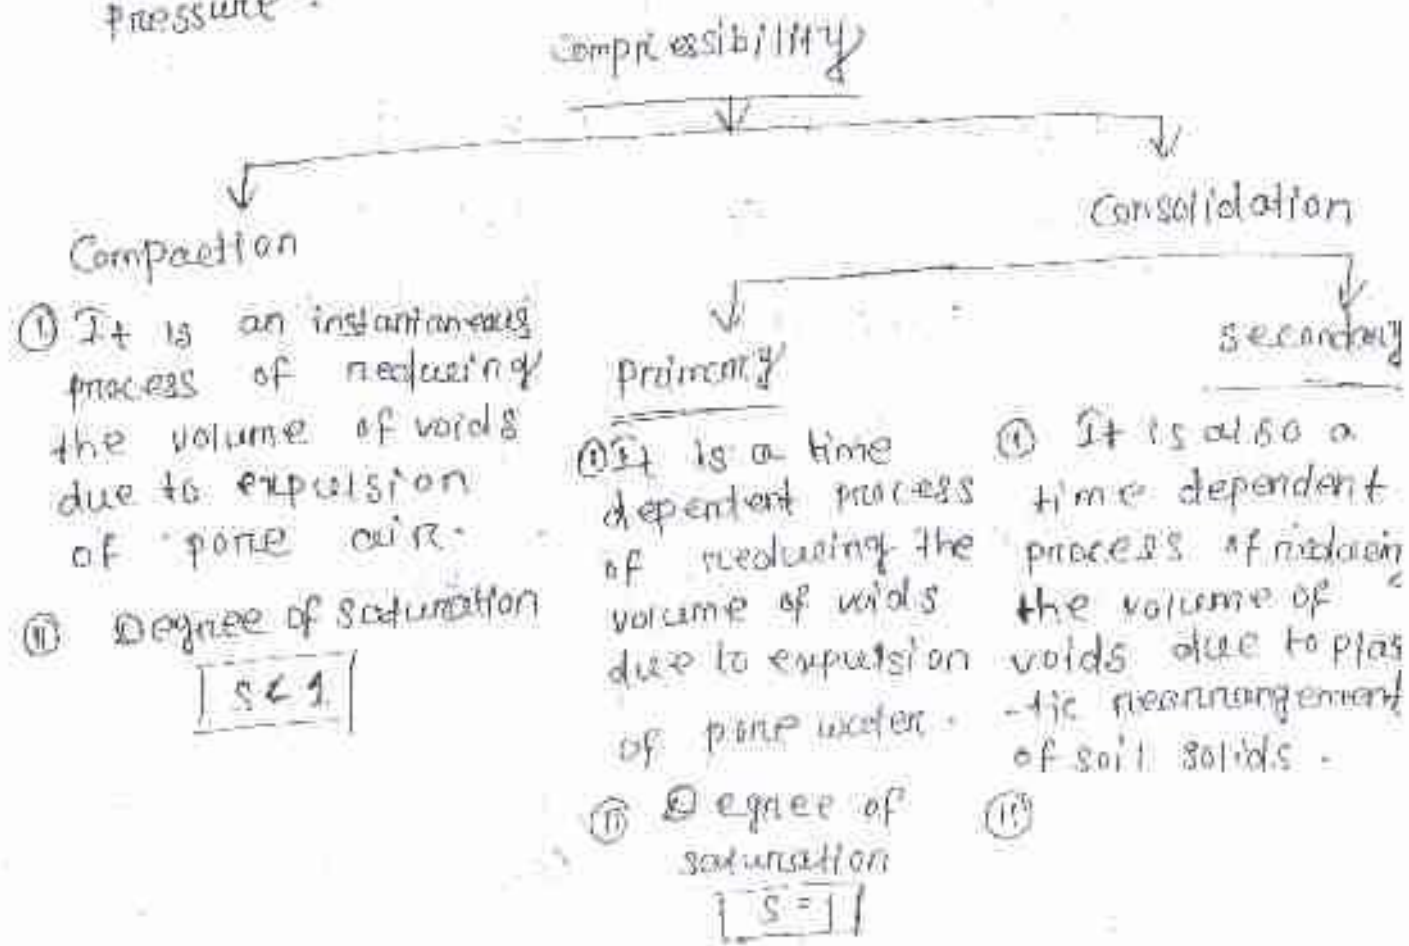 Pressure.
Compressibility
Compaction
Consolidation
① It is an instantaneous
process of reducing
the volume of voids
due to expulsion
of pore air.
⑪ Degree of saturation
S < 1
Primary
① It is a time
dependent process
of reducing the
volume of voids
due to expulsion
of pore water.
⑪ Degree of
saturation
S = 1
Secondary
① It is also a
time dependent
process of reducin
the volume of
voids due to plas
-tic rearrangement
of soil solids.
⑪